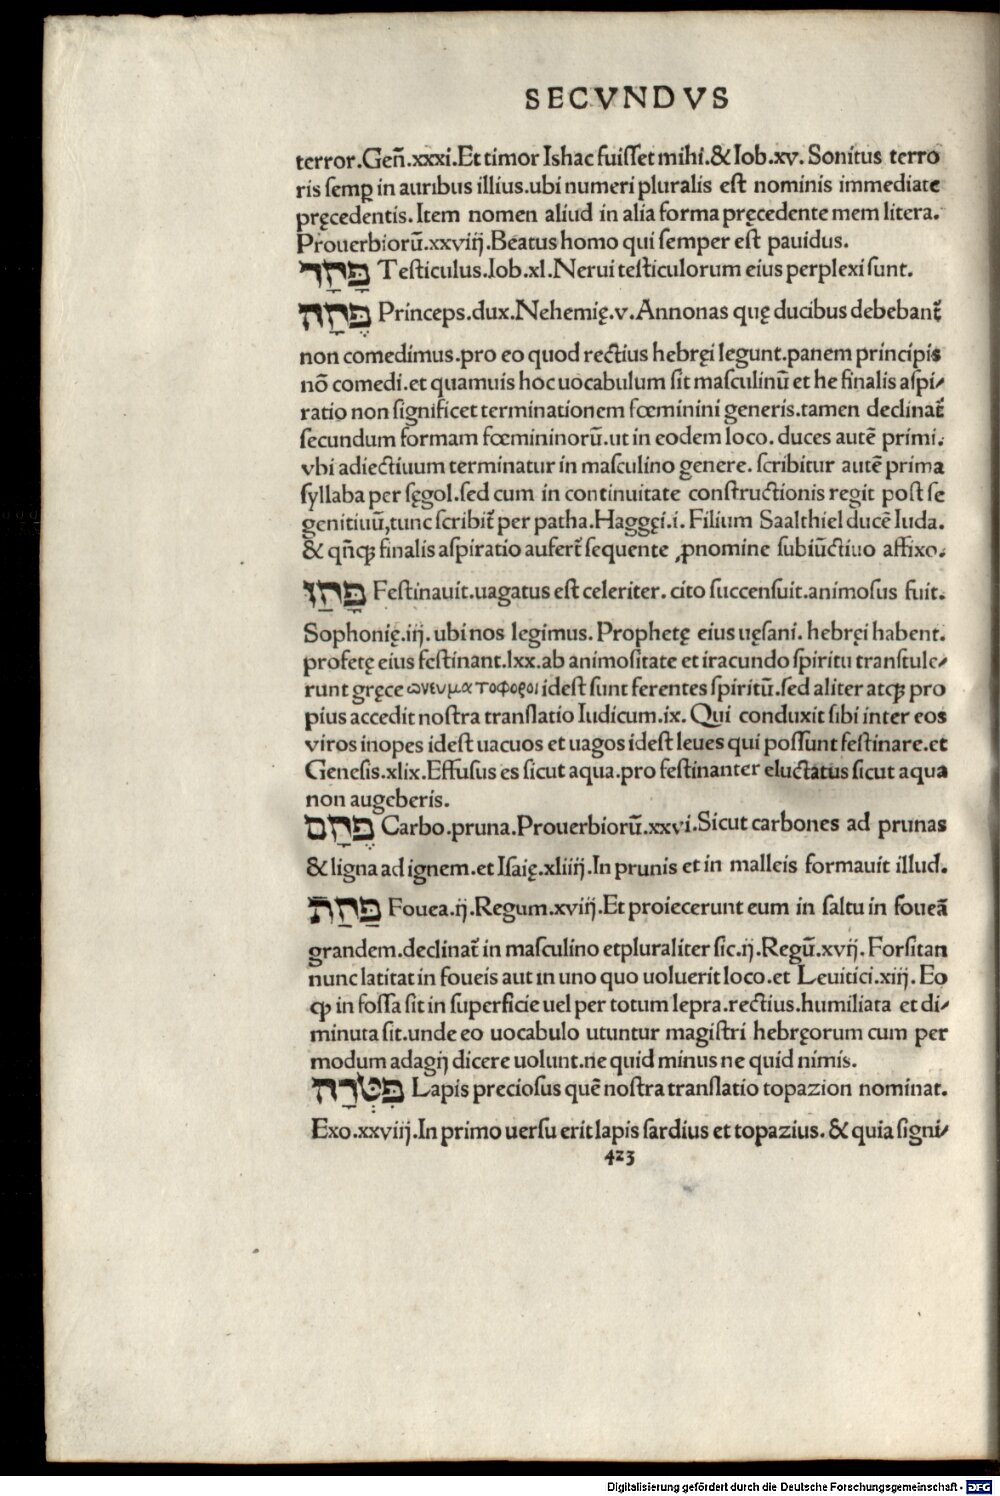 SECVNDVS
terror.Gen̄.xxxi.Et timor Ishac fuiſſet mihi.&Iob.xv. Sonitus terro
ris ſemꝑ in auribus illius.ubi numeri pluralis eſt nominis immediate
pręcedentis.Item nomen aliud in alia forma pręcedente mem litera.
Prouerbiorū.xxviij.Beatus homo qui ſemper eſt pauidus.
פָּחַד Teſticulus.Iob.xl.Nerui teſticulorum eius perplexi ſunt.
פֶּחָה Princeps.dux.Nehemię.v.Annonas quę ducibus debebant᷑
non comedimus.pro eo quod rectius hebręi legunt.panem principis
nō comedi.et quamuis hoc uocabulum ſit maſculinū et he finalis aſpi⸗
ratio non ſignificet terminationem fœminini generis.tamen declinat᷑
ſecundum formam fœmininorū.ut in eodem loco. duces autē primi.
vbi adiectiuum terminatur in maſculino genere. ſcribitur autē prima
ſyllaba per ſęgol.ſed cum in continuitate conſtructionis regit poſt ſe
genitiuū,tunc ſcribit᷑ per patha.Haggęi.i.Filium Saalthiel ducē Iuda.
& qn̄cꝙ finalis aſpiratio aufert᷑ ſequente ꝓnomine ſubiūctiuo affixo.
פָּחַז Feſtinauit.uagatus eſt celeriter. cito ſuccenſuit.animoſus fuit.
Sophonię.iij. ubi nos legimus. Prophetę eius uęſani. hebręi habent.
profetę eius feſtinant.lxx.ab animoſitate et iracundo ſpiritu tranſtule⸗
runt gręce ωνευματοφοροι ideſt ſunt ferentes ſpiritū.ſed aliter atꝙ pro
pius accedit noſtra tranſlatio Iudicum.ix. Qui conduxit ſibi inter eos
viros inopes ideſt uacuos et uagos ideſt leues qui poſſunt feſtinare.et
Geneſis.xlix.Effuſus es ſicut aqua.pro feſtinanter eluctatus ſicut aqua
non augeberis.
פֶּחָם Carbo.pruna.Prouerbiorū.xxvi.Sicut carbones ad prunas
& ligna ad ignem.et Iſaię.xliiij.In prunis et in malleis formauit illud.
פַּחַת Fouea.ij.Regum.xviij.Et proiecerunt eum in ſaltu in foueā
grandem.declinat᷑ in maſculino etpluraliter ſic.ij.Regū.xvij. Forſitan
nunc latitat in foueis aut in uno quo uoluerit loco.et Leuitici.xiij. Eo
ꝙ in foſſa ſit in ſuperficie uel per totum lepra.rectius.humiliata et di⸗
minuta ſit.unde eo uocabulo utuntur magiſtri hebręorum cum per
modum adagij dicere uolunt.ne quid minus ne quid nimis.
פִּטְּרָה Lapis precioſus quē noſtra tranſlatio topazion nominat.
Exo.xxviij.In primo uerſu erit lapis ſardius et topazius. & quia ſigni⸗
423
Digitalisierung gefördert durch die Deutsche Forschungsgemeinschaft - DFG